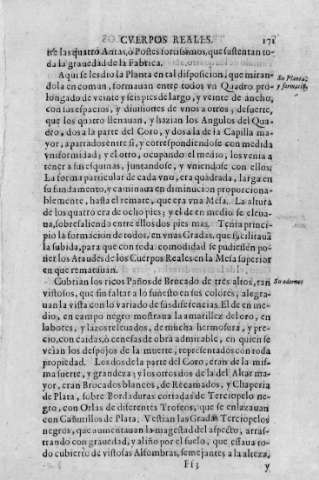 CVERPOS REALES. 171
se las quatro Antas, ò Postes fortissimos, que sustentan to-
da la grauedad de la Fabrica.
Aqui se les dio la Planta en tal disposicion, que miran-
dola en comun, formauan entre todos vn Quadro pro-
longado de veinte y seis pies de largo, y veinte de ancho,
con los espacios, y diuisiones de vnos a otros, de suerte,
que los quatro llenauan, y hazian los Angulos del Qua-
dro, dos a la parte del Coro, y dos a la de la Capilla ma-
yor, apartados entre si, y correspondiendose con medida
vniformidad; y el otro, ocupando el medio, los venia a
tener a sus esquinas, juntandose, y vniendose con ellos;
La forma particular de cada vno, era quadrada, larga en
su fundamento, y caminaua en diminucion proporciona-
blemente, hasta el remate, que era vna Mesa. La altura
de los quatro era de ocho pies; y el de en medio se eleua-
ua, sobresaliendo entre ellos dos pies mas. Tenia princi-
pio la formacion de todos, en vnas Gradas, que facilitauã
la subida, para que con toda comodidad se pudiessen po-
ner los Ataudes de los Cuerpos Reales en la Mesa superior
en que rematauan.
Cubrian los ricos Paños de Brocado de tres altos, tan
vistosos, que sin faltar a lo funesto en sus colores, alegra-
uan la vista con lo variado de sus diferencias. El de en me-
dio, en campo negro mostraua la amarillez del oro, en
labores, y lazos releuados, de mucha hermosura, y pre-
cio, con caidas, ò cenefas de obra admirable, en quien se
veìan los despojos de la muerte, representados con toda
propiedad. Los dos de la parte del Coro, eran de la mis-
ma suerte, y grandeza; y los otros dos de la del Altar ma-
yor, eran Brocados blancos, de Recamados, y Chaperia
de Plata, sobre Bordaduras cortadas de Terciopelo ne-
gro, con Orlas de diferentes Trofeos, que se enlazauan
con Castillos de Plata. Vestian las Gradas Terciopelos
negros, que aumentauan la magestad del aspecto, arras-
trando con grauedad, y aliño por el suelo, que estaua to-
do cubierto de vistosas Alfombras, semejantes a la alteza,
Ff3 y
Su Planta,
y formaciõ.
Su adorno